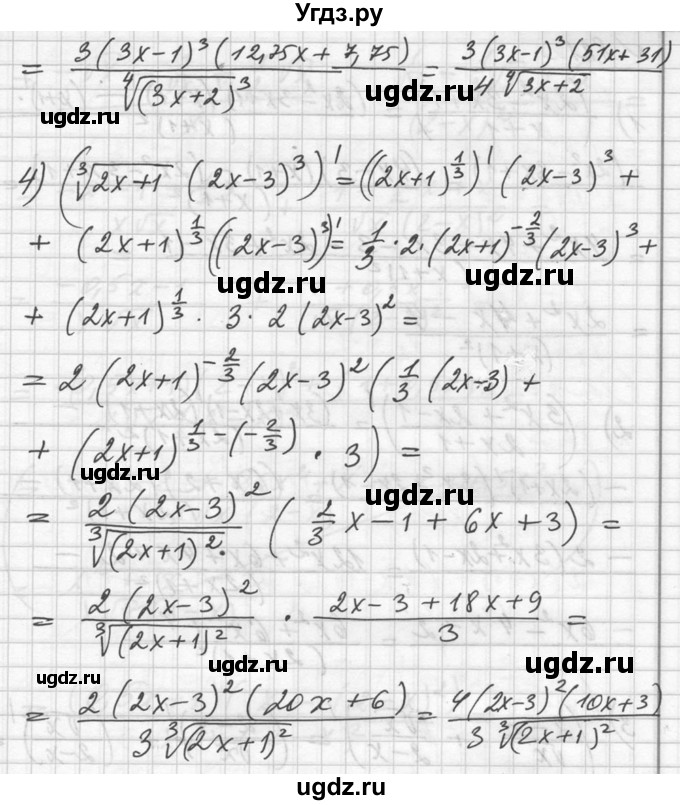 Угдз.ру
= 3(3x-1)³(12,75x+7,75) / ⁴√(3x+2)³ = 3(3x-1)³(51x+31) / 4 ⁴√3x+2
ugdz.ru ugdz.ru
4) (³√2x+1 (2x-3)³)' = ((2x+1)^(1/3))' (2x-3)³ +
+ (2x+1)^(1/3) ((2x-3)³)' = 1/3 · 2 · (2x+1)^(-2/3) (2x-3)³ +
ugdz.ru
+ (2x+1)^(1/3) · 3 · 2 (2x-3)² =
= 2 (2x+1)^(-2/3) (2x-3)² (1/3 (2x-3) +
+ (2x+1)^(1/3-(-2/3)) · 3) =
ugdz.ru ugdz.ru
= 2(2x-3)² / ³√(2x+1)² (2/3 x - 1 + 6x + 3) =
= 2(2x-3)² / ³√(2x+1)² · 2x-3+18x+9 / 3 =
ugdz.ru ugdz.ru
= 2(2x-3)²(20x+6) / 3 ³√(2x+1)² = 4(2x-3)²(10x+3) / 3 ³√(2x+1)²
ugdz.ru